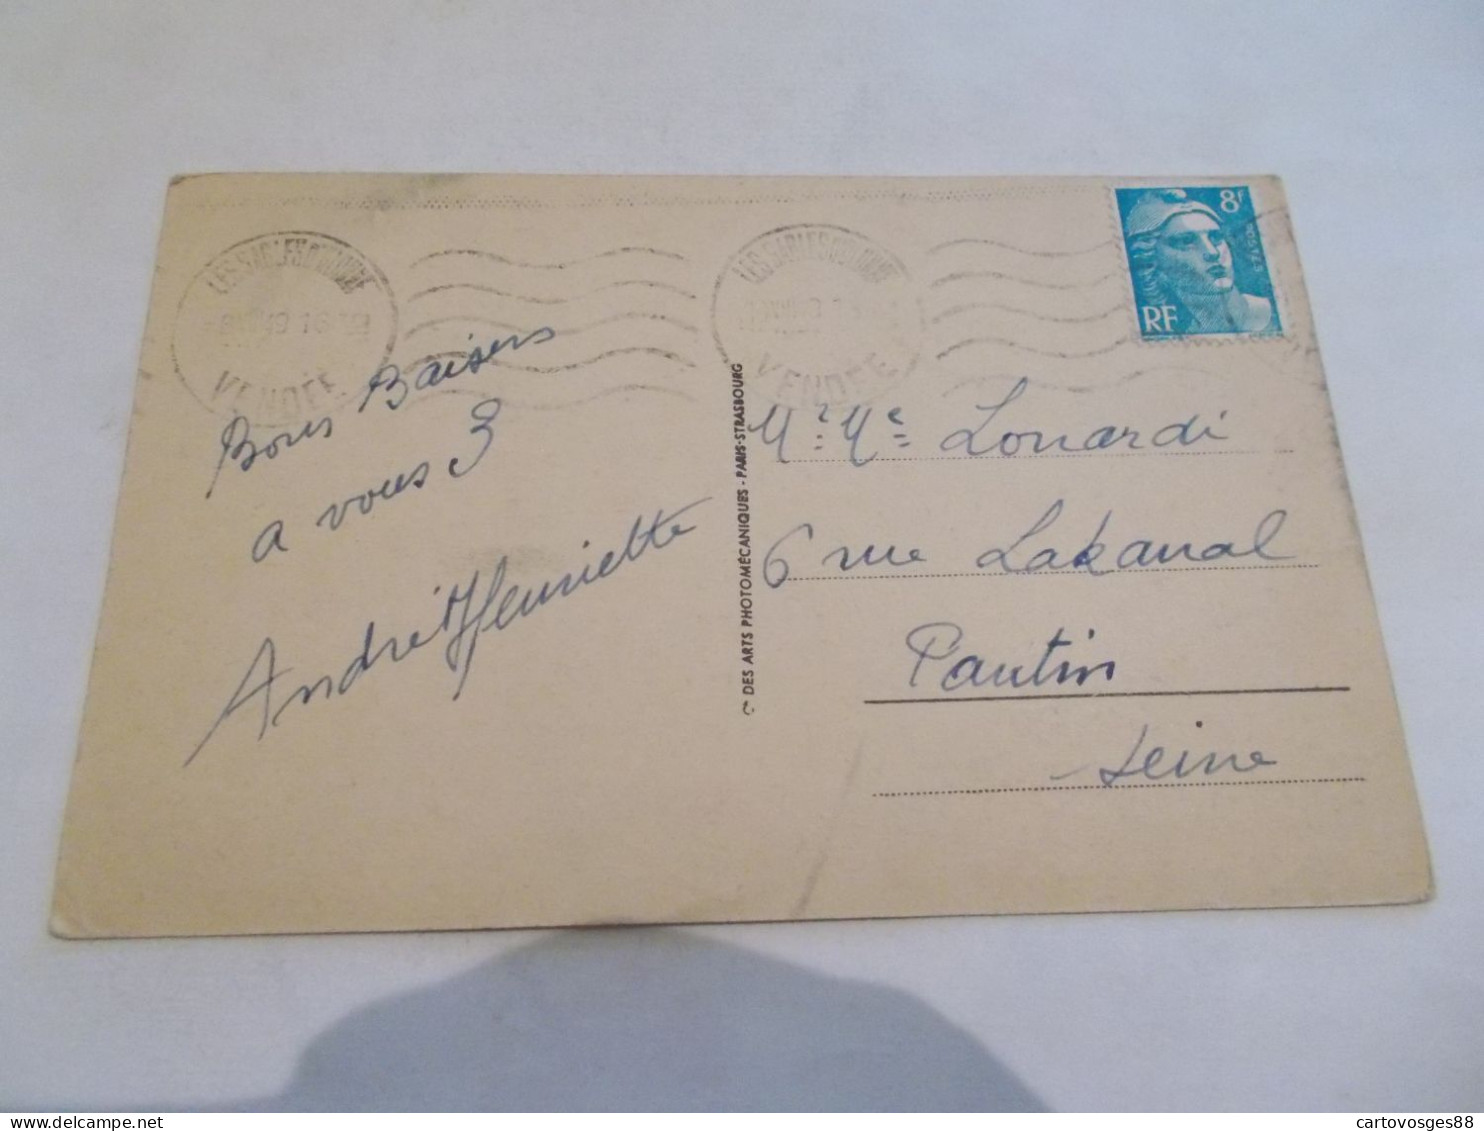 LES SABLES D'OLONNE
VENDÉE
LES SABLES D'OLONNE
VENDÉE
8F
RF
Bons Baisers
a vous 3
André Henriette
Cie DES ARTS PHOTOMÉCANIQUES - PARIS-STRASBOURG
Mr. Me Lonardi
6 rue Lakanal
Pantin
Seine
cartovosges88